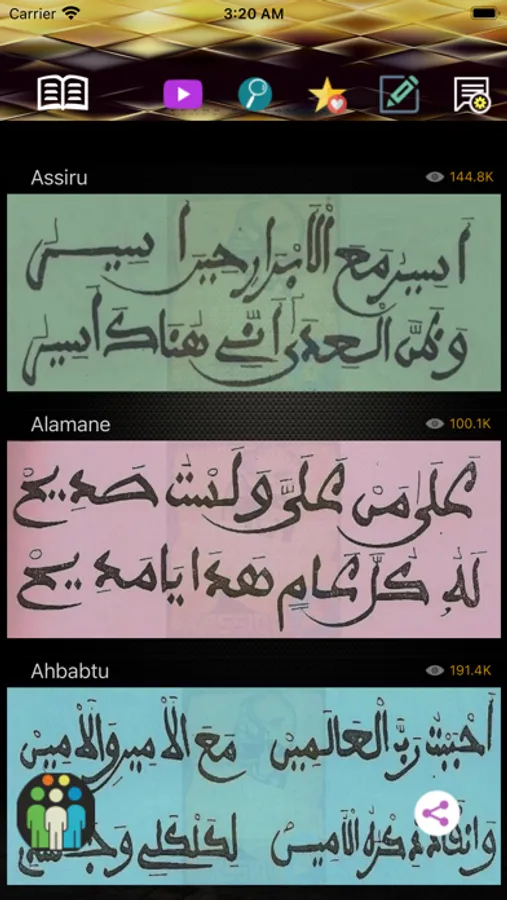 Carrier 3:20 AM
Assiru 144.8K
أسير مع الأبرار حين أسير
وظن العدى أني هناك أسير
Alamane 100.1K
على من علي ولست
له كل عام هدايا مديح
Ahbabtu 191.4K
أحببت رب العالمين مع الأمير والأمين
الأمين لكلكلي